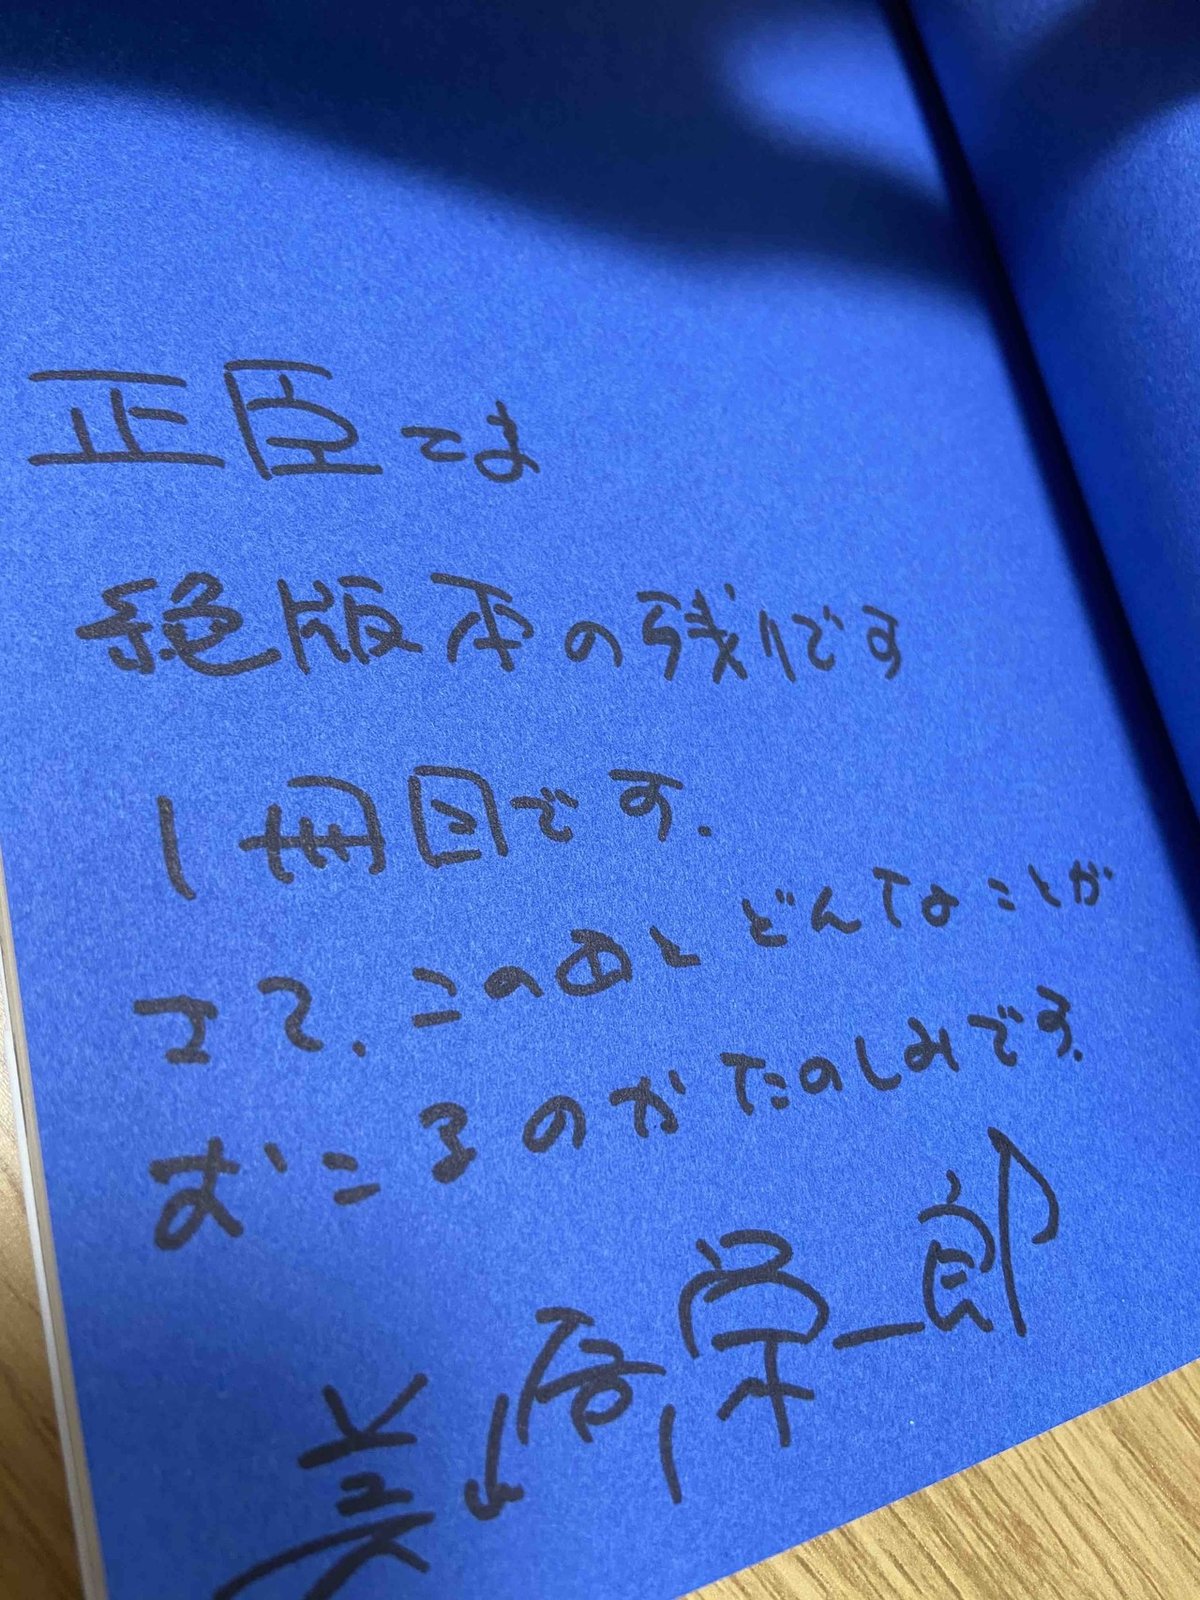 正臣
絶版本の残りです
1冊目です.
さて.このあとどんなことが
おこるのかたのしみです.
栄一郎